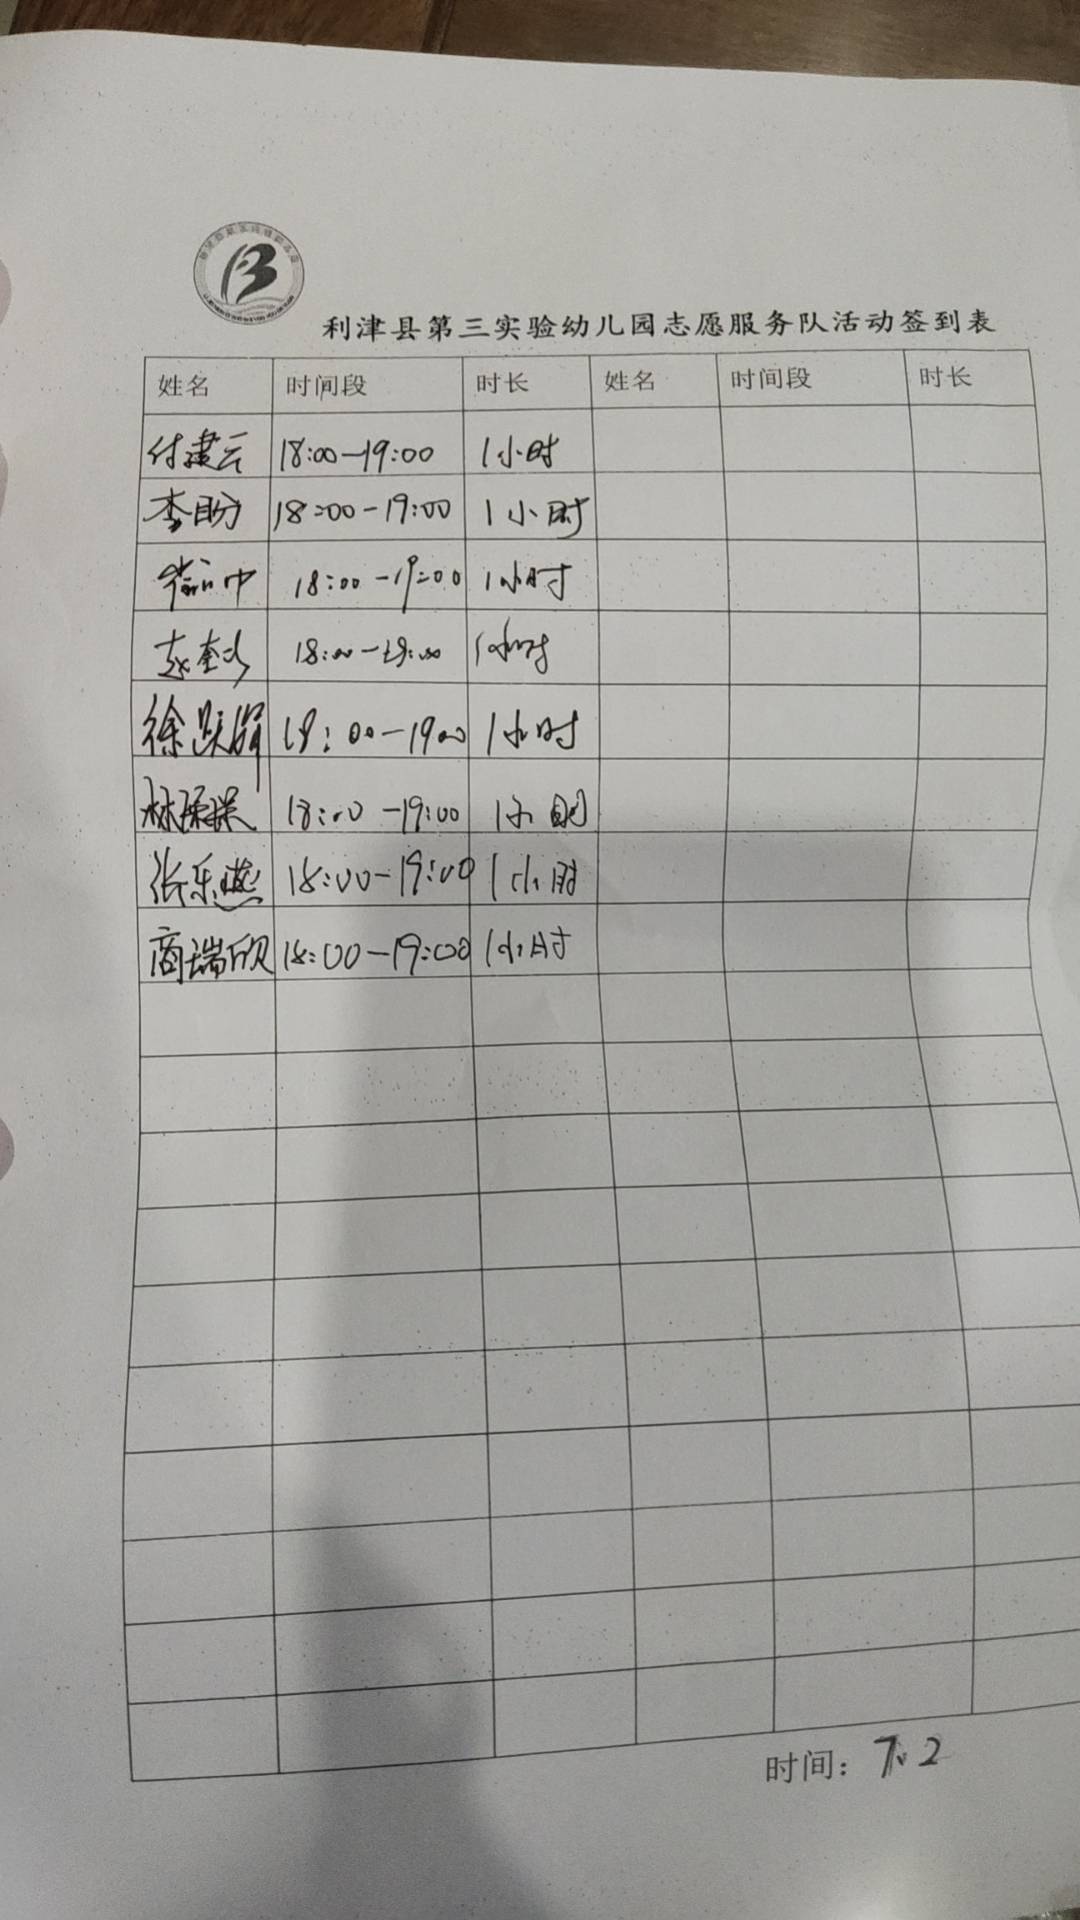 利津县第三实验幼儿园志愿服务队活动签到表
姓名 时间段 时长 姓名 时间段 时长
付建云 18:00-19:00 1小时
李盼 18:00-19:00 1小时
18:00-19:00 1小时
赵奎 18:00-19:00 1小时
徐跃 18:00-1900 1小时
林 18:00-19:00 1小时
张乐燕 18:00-19:00 1小时
商瑞欣 18:00-19:00 1小时
时间: 7.2